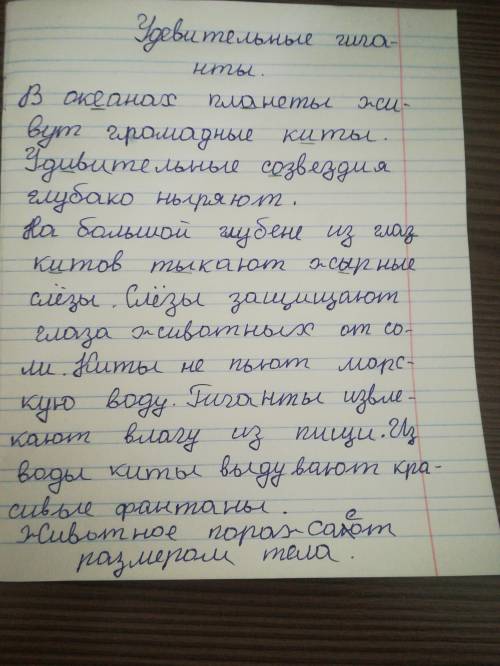 Удевительные гига-
нты.
В океанах планеты жи-
вут громадные киты.
Удивительные созвездия
глубако ныряют.
На большой глубене из глаз
китов тыкают жырные
слёзы. Слёзы защищают
глаза животных от со-
ли. Киты не пьют морс-
кую воду. Гиганты извле-
кают влагу из пищи. Из
воды киты выдувают кра-
сивые фантаны.
Живытное поражает
размером тела.